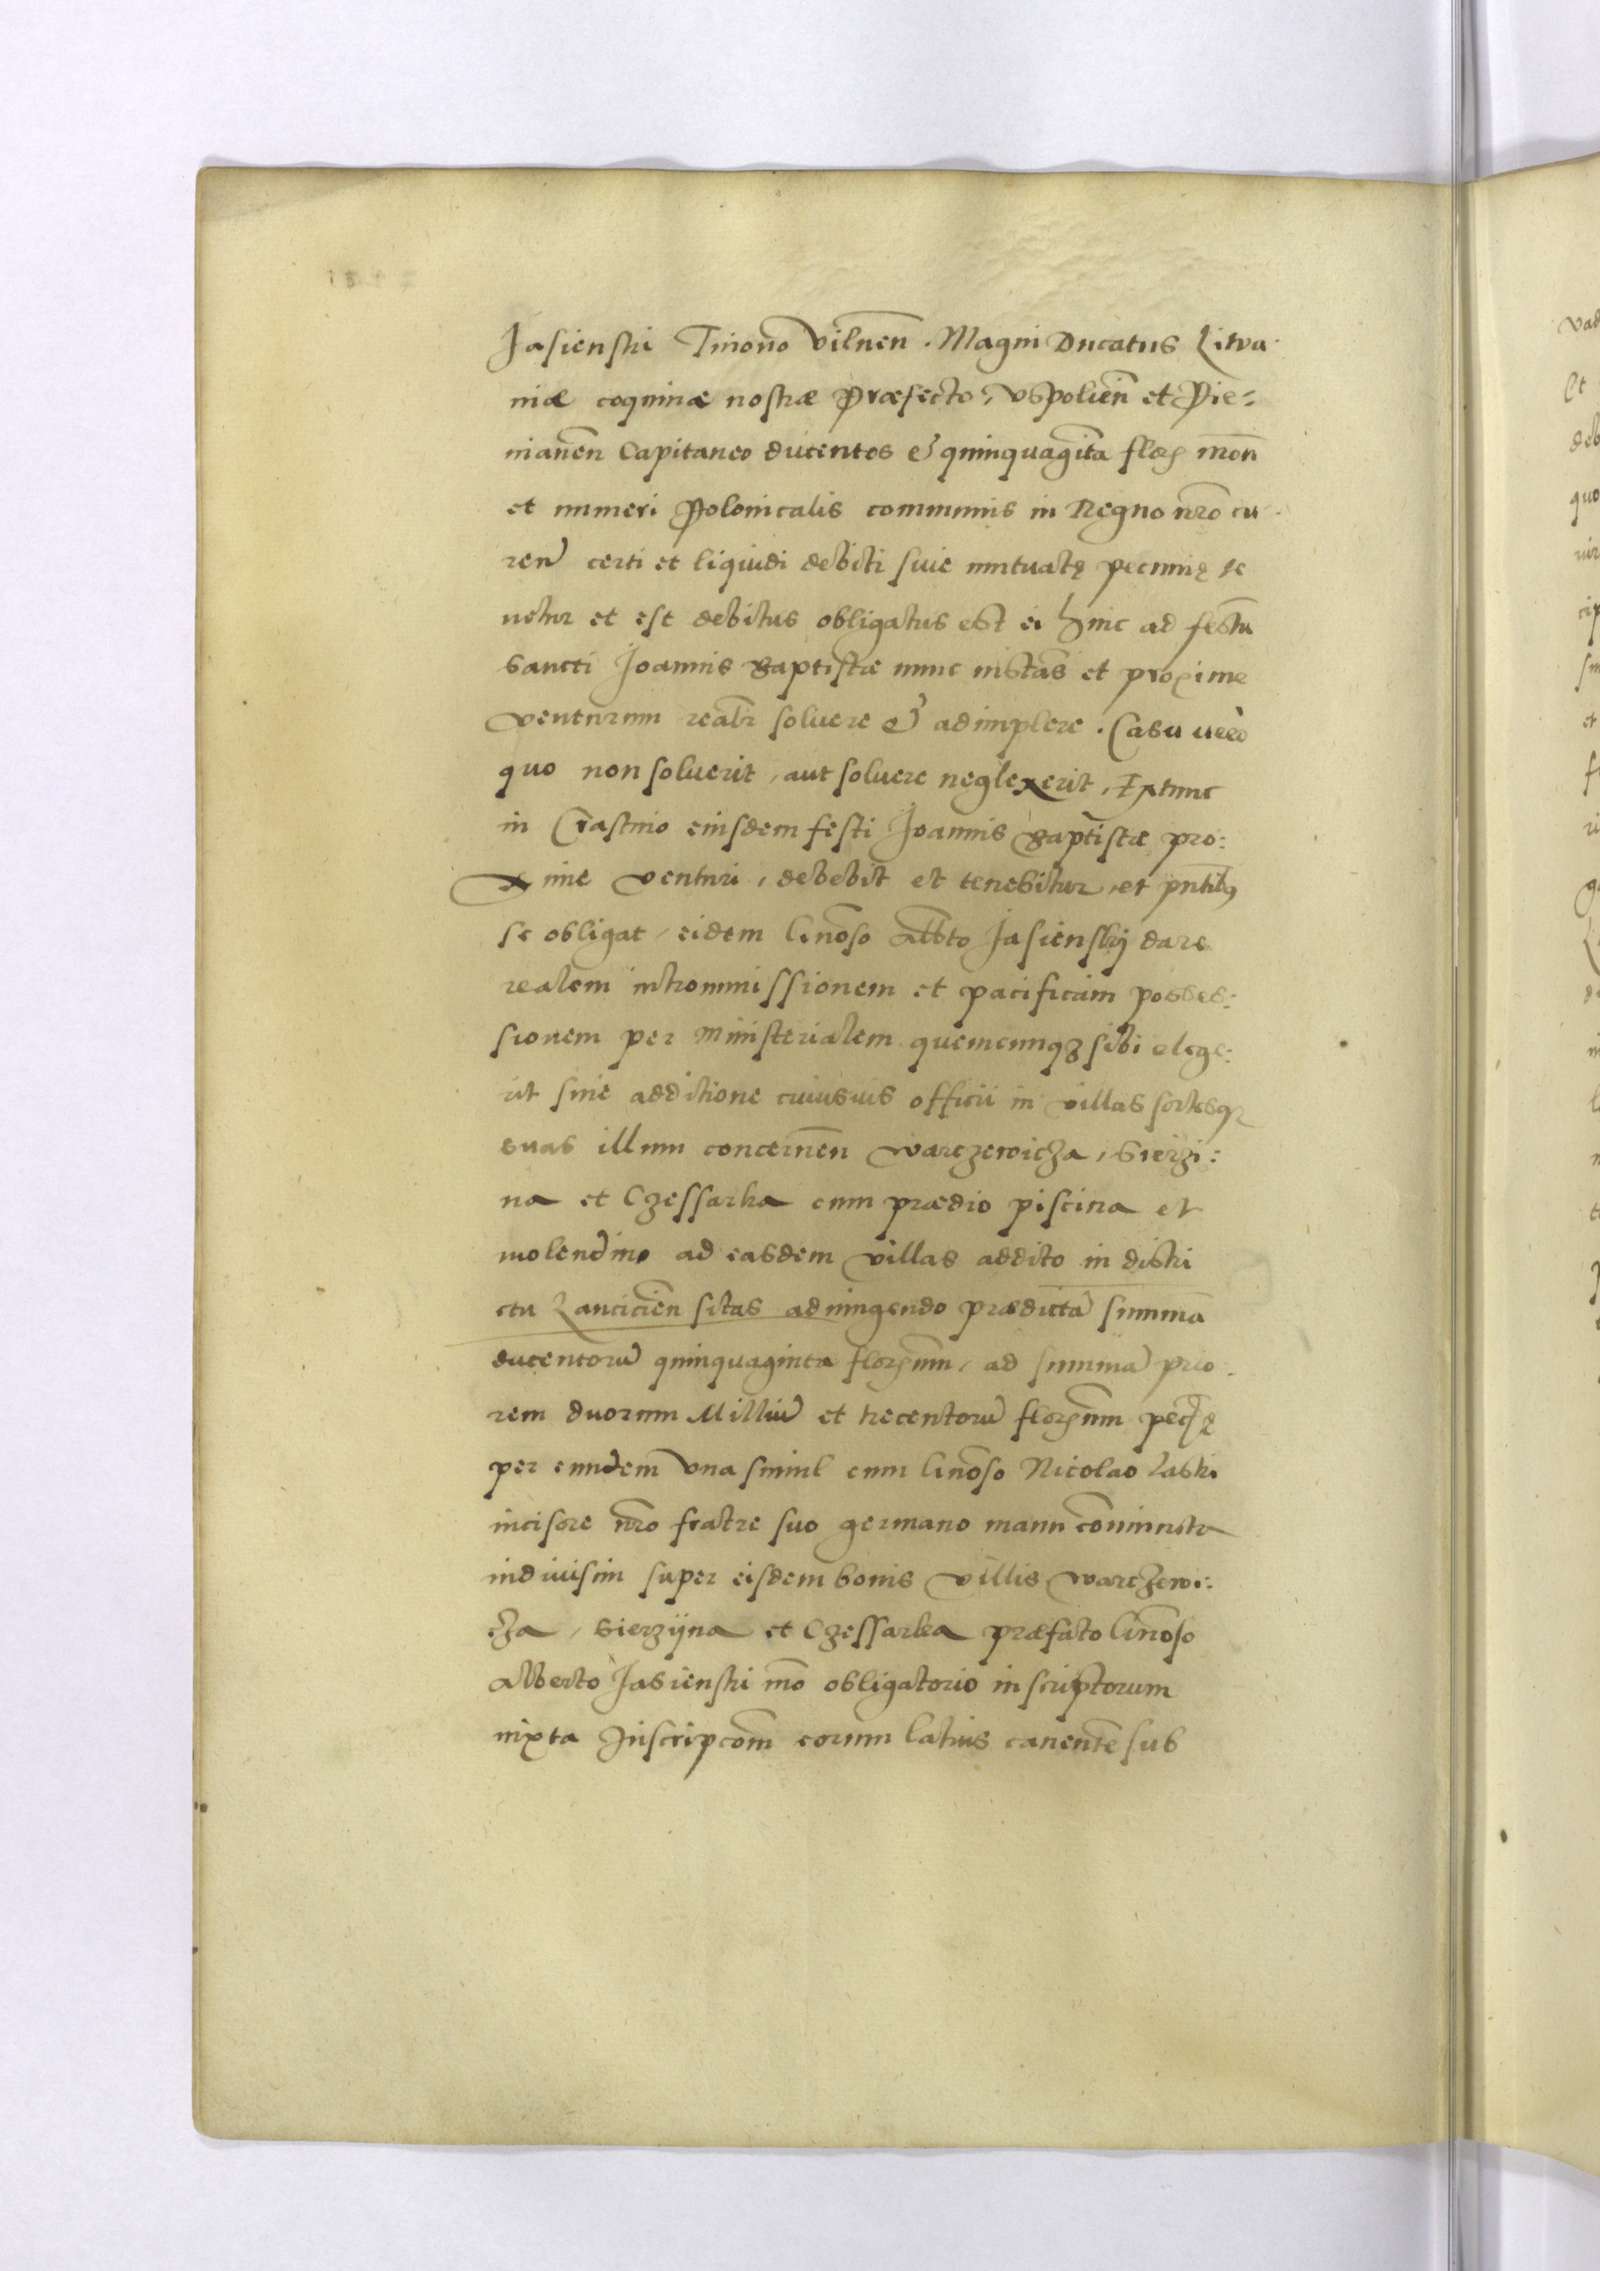 Jasienski Tiuono Vilnen. Magni Ducatus Litva
niæ coquinæ nostræ Præfecto, Vspolien et Pie=
nianen Capitaneo ducentos & quinquaginta flor mon
et numeri Polonicalis communis in Regno nro cu
ren certi et liquidi debiti siue mutuatę pecunię te
netur et est debitus obligatus est ei hinc ad festu
sancti Joannis Baptistæ nunc instans et proxime
venturum realr soluere & adimplere. Casu vero
quo non soluerit, aut soluere neglexerit, Extunc
in Crastino eiusdem festi Joannis Baptistæ pro:
xime venturi, debebit et tenebitur, et pntibus
se obligat, eidem Gnoso Albto Jasienskj dare
realem intromissionem et pacificam posses:
sionem per Ministerialem quemcunqz sibi elege:
rit sine additione cuiusuis officii in villas sortesqz
suas illum concernen Warczewicza, Sierzi:
na et Czessarka cum prædio piscina et
molendino ad easdem villas addito in distri
ctu Lancicien sitas adiungendo prædicta summa
ducentoru quinquaginta florenum, ad summa prio
rem duorum Milliu et trecentoru florenum pecę
per eundem vna simul cum Gnoso Nicolao Laski
incisore nro fratre suo germano manu coniuncta
indiuisim super eisdem bonis villis Warczewi:
cza, Sierzyna et Czessarka præfato Gnoso
Alberto Jasienski mo obligatorio inscriptorum
iuxta Inscripcom eorum latius canente sub